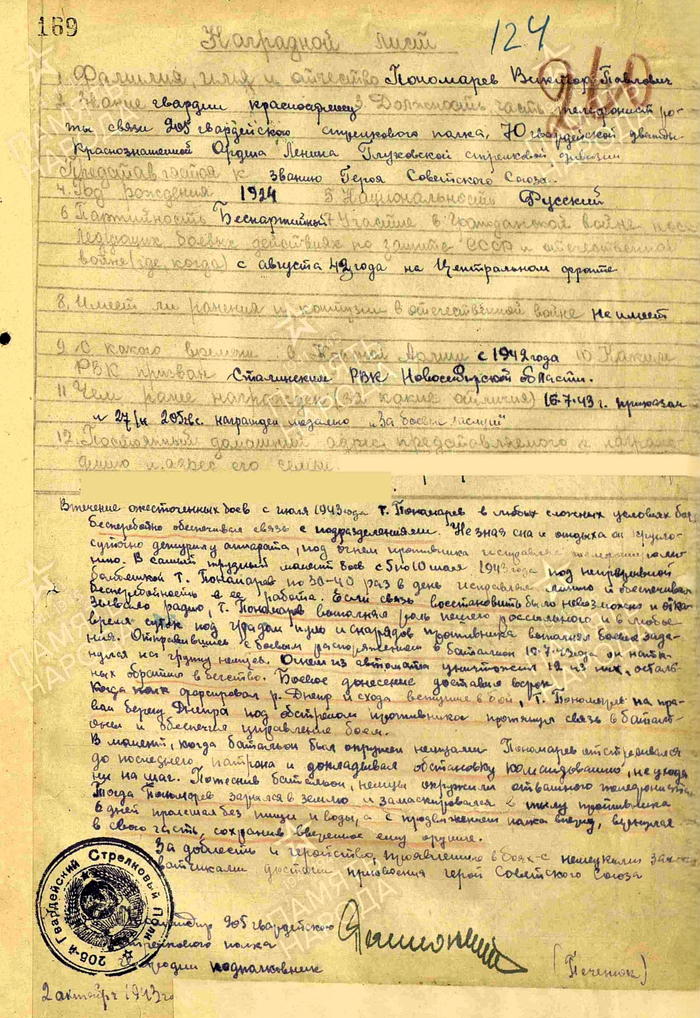 169
124
260
Наградной лист
1. Фамилия, имя и отчество Пономарев Виктор Павлович
2. Звание гвардии красноармеец 3. Должность часть телефонист ро-
ты связи 205 гвардейского стрелкового полка, 70 гвардейской дважды
Краснознаменной Ордена Ленина Глуховской стрелковой дивизии
Представляется к званию Героя Советского Союза.
4. Год рождения 1924 5. Национальность Русский
6. Партийность Беспартийный 7. Участие в гражданской войне, после
дующих боевых действиях по защите СССР и отечественной
войне (где, когда) с августа 42 года на Центральном фронте
8. Имеет ли ранения и контузии в отечественной войне не имеет
9. С какого времени в Красной Армии с 1942 года 10. Каким
РВК призван Сталинским РВК Новосибирской области.
11. Чем ранее награжден (за какие отличия) 16.7.43 г. приказом
н 27/н 205гвс. награжден медалью "За боевые заслуги"
12. Постоянный домашний адрес, представляемого к награж-
дению и адрес его семьи.
В течение ожесточенных боев с июля 1943 года т. Пономарев в любых сложных условиях боя
бесперебойно обеспечивал связь с подразделениями. Не зная сна и отдыха он кругло-
суточно дежурил у аппарата, под огнем противника исправлял телефонную ли-
нию. В самый трудный момент боев с 5 по 10 июля 1943 года под непрерывной
бомбежкой т. Пономарев по 30-40 раз в день исправлял линию и обеспечивал
бесперебойность в её работе. Если связь восстановить было невозможно и отка
зывало радио, т. Пономарев выполнял роль пешего рассыльного и в любое
время суток под градом пуль и снарядов противника выполнял боевые зада-
ния. Отправившись с боевым распоряжением в батальон 19.7.43 года, он натк-
нулся на группу немцев. Огнем из автомата уничтожил 12 из них, осталь-
ных обратил в бегство. Боевое донесение доставил в срок.
Когда полк форсировал р. Днепр и с хода вступил в бой, т. Пономарев на пра-
вом берегу Днепра под обстрелом противника протянул связь в баталь-
оны и обеспечил управление боем.
В момент, когда батальон был окружен немцами Пономарев отстреливался
до последнего патрона и докладывал обстановку командованию, не уходя
ни на шаг. Потеснив батальон, немцы окружили отважного телефониста.
Тогда Пономарев зарылся в землю и замаскировался в тылу противника
6 дней пролежал без пищи и воды, а с продвижением полка вперед, вернулся
в свою часть, сохранив вверенное ему оружие.
За доблесть и геройство, проявленные в боях с немецкими зах-
ватчиками достоин присвоения герой Советского Союза
командир 205 гвардейского
стрелкового полка
гвардии подполковник
(Печенюк)
2 октября 1943 го
206-й Гвардейский Стрелковый Полк
ПАМЯТЬ НАРОДА